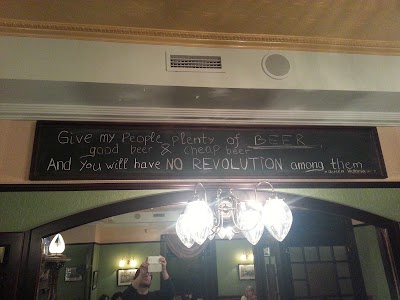 Give my People plenty of BEER
good beer & cheap beer
And You will have NO REVOLUTION among them
- Queen Victoria -